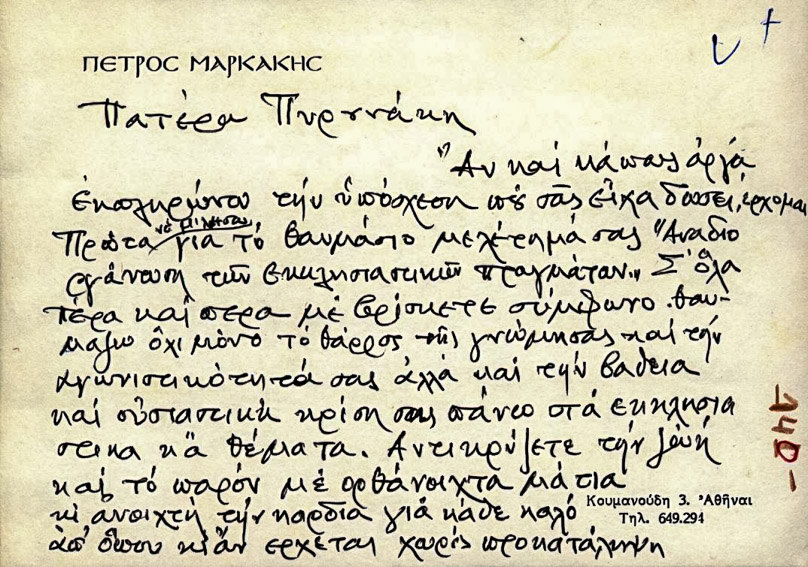 ΠΕΤΡΟΣ ΜΑΡΚΑΚΗΣ
Πατέρα Πυρουνάκη
Ἄν καί κάπως ἀργά
ἐκπληρώνω τήν ὑπόσχεση πού σᾶς εἶχα δώσει, ἔρχομαι
νά μιλήσω
Πρῶτα γιά τό θαυμάσιο μελέτημά σας "Ἀναδιο
ργάνωση τῶν ἐκκλησιαστικῶν πραγμάτων". Σ' ὅλα
πέρα καί πέρα μέ βρίσκετε σύμφωνο. Θαυ-
μάζω ὄχι μόνο τό θάρρος τῆς γνώμης σας καί τήν
ἀγωνιστικότητά σας ἀλλά καί τήν βαθειά
καί οὐσιαστική κρίση σας πάνω στά ἐκκλησια
στικά κα θέματα. Ἀντικρύζετε τήν ζωή
καί τό παρόν μέ ορθάνοιχτα μάτια
κι ανοιχτή τήν καρδιά γιά κάθε καλό
ἀπ' ὅπου κι ἄν ερχεται χωρίς προκατάληψη
Κουμανούδη 3. Ἀθῆναι
Τηλ. 649.294
140-